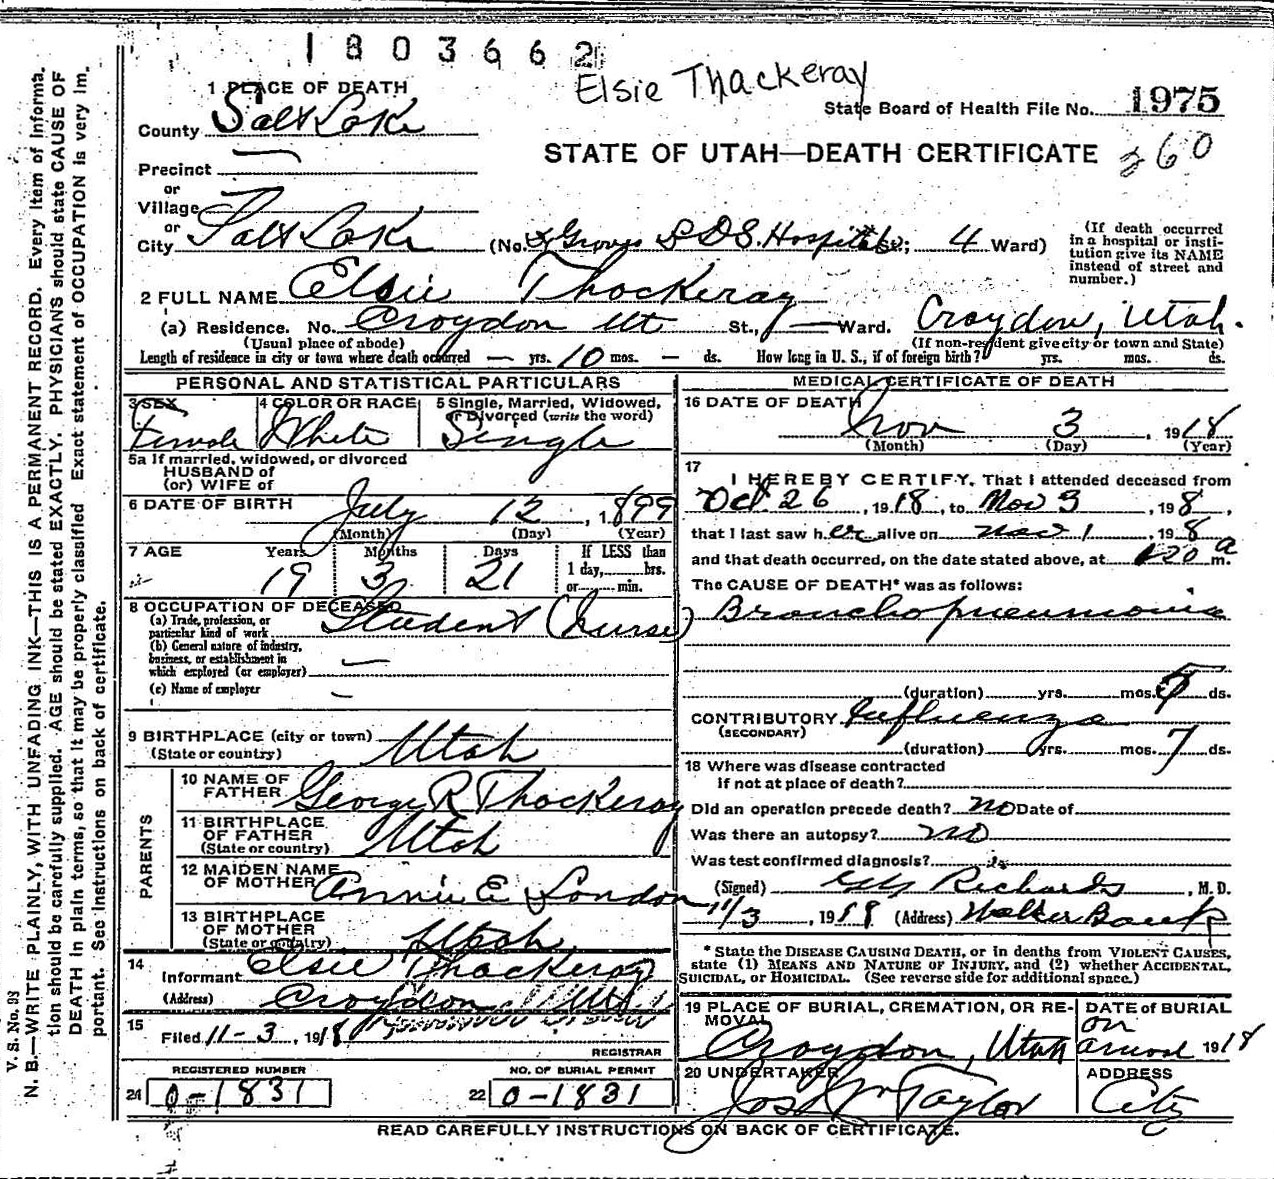 1803662
Elsie Thackeray
1 PLACE OF DEATH
State Board of Health File No. 1975
County Salt Lake
STATE OF UTAH—DEATH CERTIFICATE 260
Precinct —
or
Village
or
City Salt Lake (No. Groves L D S. Hospital St.; 4 Ward)
(If death occurred in a hospital or institution give its NAME instead of street and number.)
2 FULL NAME Elsie Thackeray
(a) Residence. No. Croydon Ut St., — Ward. Croydon, Utah.
(Usual place of abode) (If non-resident give city or town and State)
Length of residence in city or town where death occurred — yrs. 10 mos. — ds. How long in U. S., if of foreign birth? yrs. mos. ds.
PERSONAL AND STATISTICAL PARTICULARS
3 SEX Female
4 COLOR OR RACE White
5 Single, Married, Widowed, or Divorced (write the word) Single
5a If married, widowed, or divorced
HUSBAND of
(or) WIFE of
6 DATE OF BIRTH July 12, 1899
(Month) (Day) (Year)
7 AGE Years Months Days If LESS than
1 day, hrs.
or min.
19 3 21
8 OCCUPATION OF DECEASED
(a) Trade, profession, or particular kind of work Student (nurse)
(b) General nature of industry, business, or establishment in which employed (or employer) —
(c) Name of employer —
9 BIRTHPLACE (city or town)
(State or country) Utah
PARENTS
10 NAME OF FATHER George R Thackeray
11 BIRTHPLACE OF FATHER
(State or country) Utah
12 MAIDEN NAME OF MOTHER Annie E London
13 BIRTHPLACE OF MOTHER
(State or country) Utah
14
Informant Elsie Thackeray
(Address) Croydon Utah
15
Filed 11-3, 1918
REGISTRAR
REGISTERED NUMBER
21 0-1831
NO. OF BURIAL PERMIT
22 0-1831
MEDICAL CERTIFICATE OF DEATH
16 DATE OF DEATH
Nov 3, 1918
(Month) (Day) (Year)
17
I HEREBY CERTIFY, That I attended deceased from
Oct. 26, 1918, to Nov 3, 1918,
that I last saw her alive on Nov 1, 1918
and that death occurred, on the date stated above, at 120 a m.
The CAUSE OF DEATH* was as follows:
Bronchopneumonia
(duration) yrs. mos. 5 ds.
CONTRIBUTORY Influenza
(SECONDARY)
(duration) yrs. mos. 7 ds.
18 Where was disease contracted
if not at place of death?
Did an operation precede death? no Date of
Was there an autopsy? no
Was test confirmed diagnosis?
(Signed) Richards, M. D.
11/3, 1918 (Address) Walker Bank
* State the DISEASE CAUSING DEATH, or in deaths from VIOLENT CAUSES,
state (1) MEANS AND NATURE OF INJURY, and (2) whether ACCIDENTAL,
SUICIDAL, or HOMICIDAL. (See reverse side for additional space.)
19 PLACE OF BURIAL, CREMATION, OR REMOVAL
Croydon, Utah
DATE OF BURIAL
on arrival 1918
20 UNDERTAKER
Jos Wm Taylor
ADDRESS
City
READ CAREFULLY INSTRUCTIONS ON BACK OF CERTIFICATE.
V. S. No. 98
N. B.—WRITE PLAINLY, WITH UNFADING INK—THIS IS A PERMANENT RECORD. Every item of information should be carefully supplied. AGE should be stated EXACTLY. PHYSICIANS should state CAUSE OF DEATH in plain terms, so that it may be properly classified. Exact statement of OCCUPATION is very important. See instructions on back of certificate.